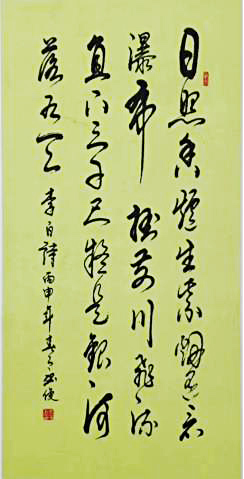 日照香爐生紫煙遥看
瀑布掛前川飛流
直下三千尺疑是銀河
落九天
李白詩丙申年春